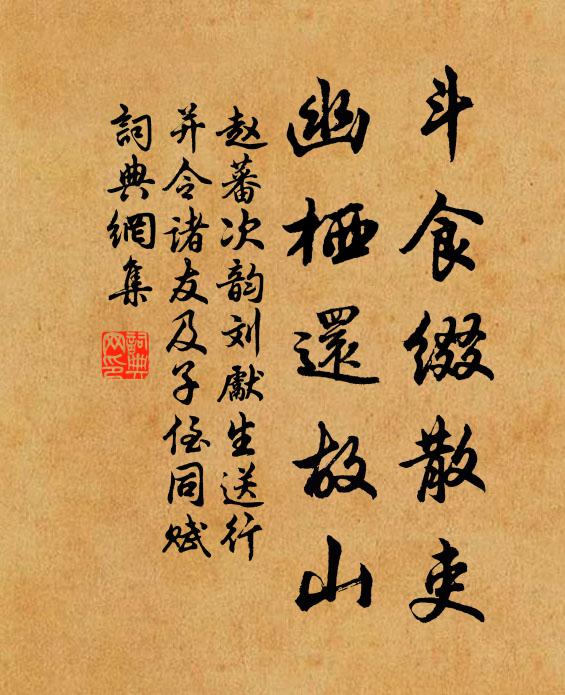 斗食缀散吏
幽栖還故山
赵蕃次韵刘獻生送行
并令诸友及子侄同赋
詞典網集
詞典
网印